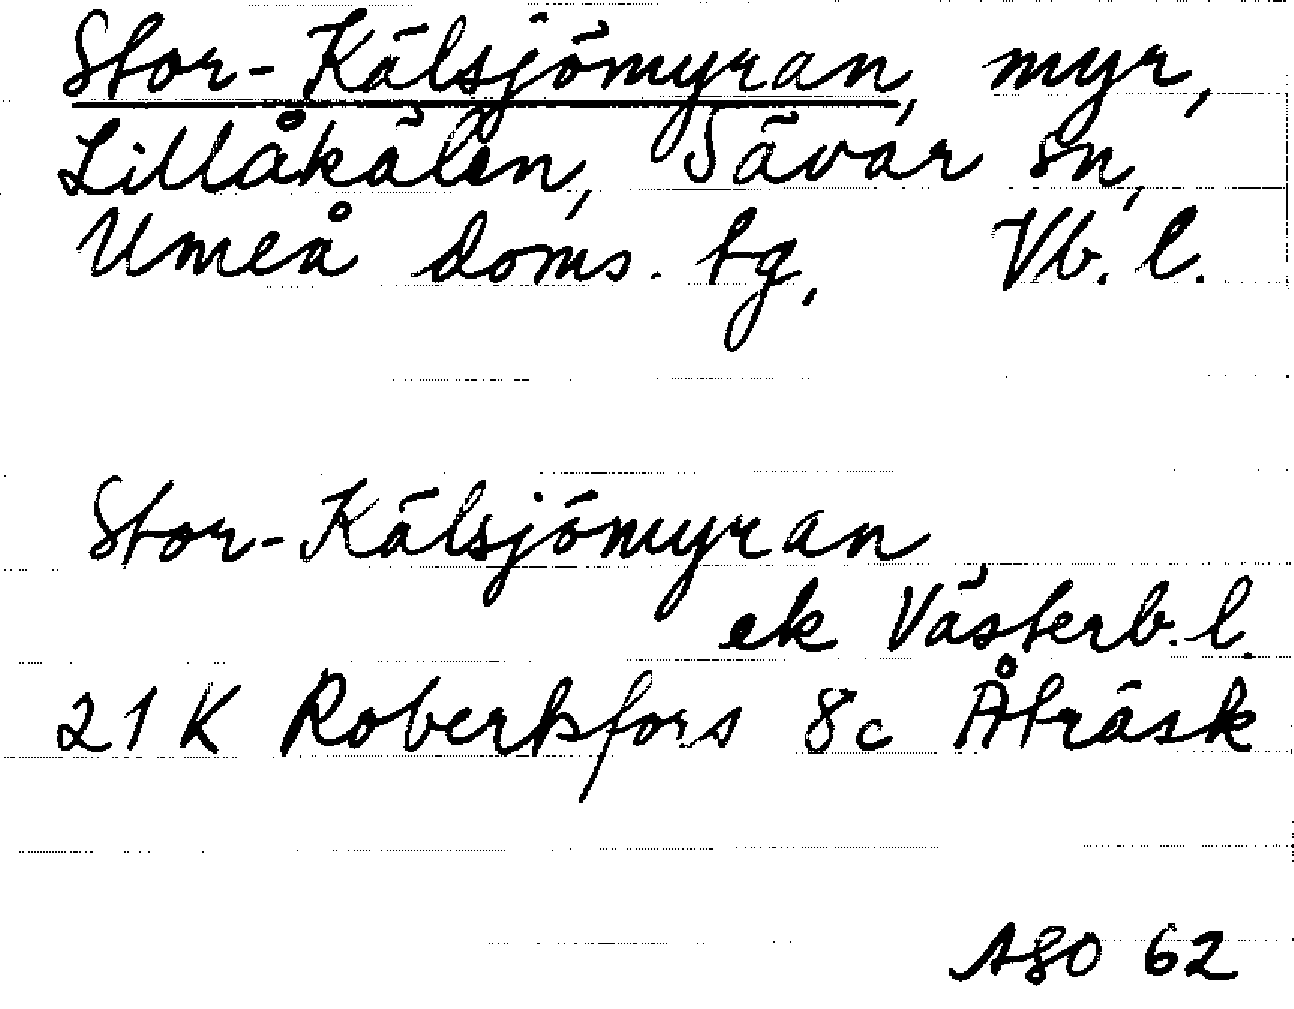 Stor-Kälsjömyran, myr,
Lillåkälen, Sävar sn,
Umeå doms. tg, Vb. l.
Stor-Kälsjömyran
ek Västerb. l.
21 K Robertsfors 8c Åträsk
ASO 62